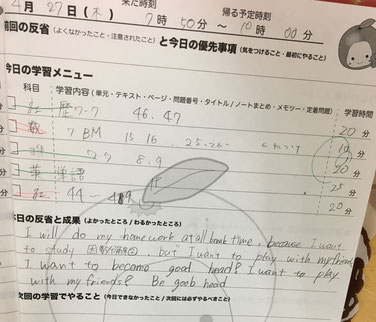 4月27日(木) 来た時刻 7時50分〜 帰る予定時刻 10時00分
前回の反省(よくなかったこと・注意されたこと)と今日の優先事項(気をつけること・最初にやること)
今日の学習メニュー
科目 学習内容(単元・テキスト・ページ・問題番号・タイトル/ノートまとめ・メモツー・定着問題) 学習時間
社 歴ワーク 46.47 20分
数 BM 15 16 25-26 分
ワーク 8.9 分
英 単語 25分
社 44〜 20分
本日の反省と成果(よかったところ/わかるところ)
I will do my homework at all break time, because I want
to study 因数分解 but I want to play with my friend
I want to become good head? I want to play
with my friends? Be goob head
次回の学習でやること(今日できなかったこと/次回には必ずやるべきこと)